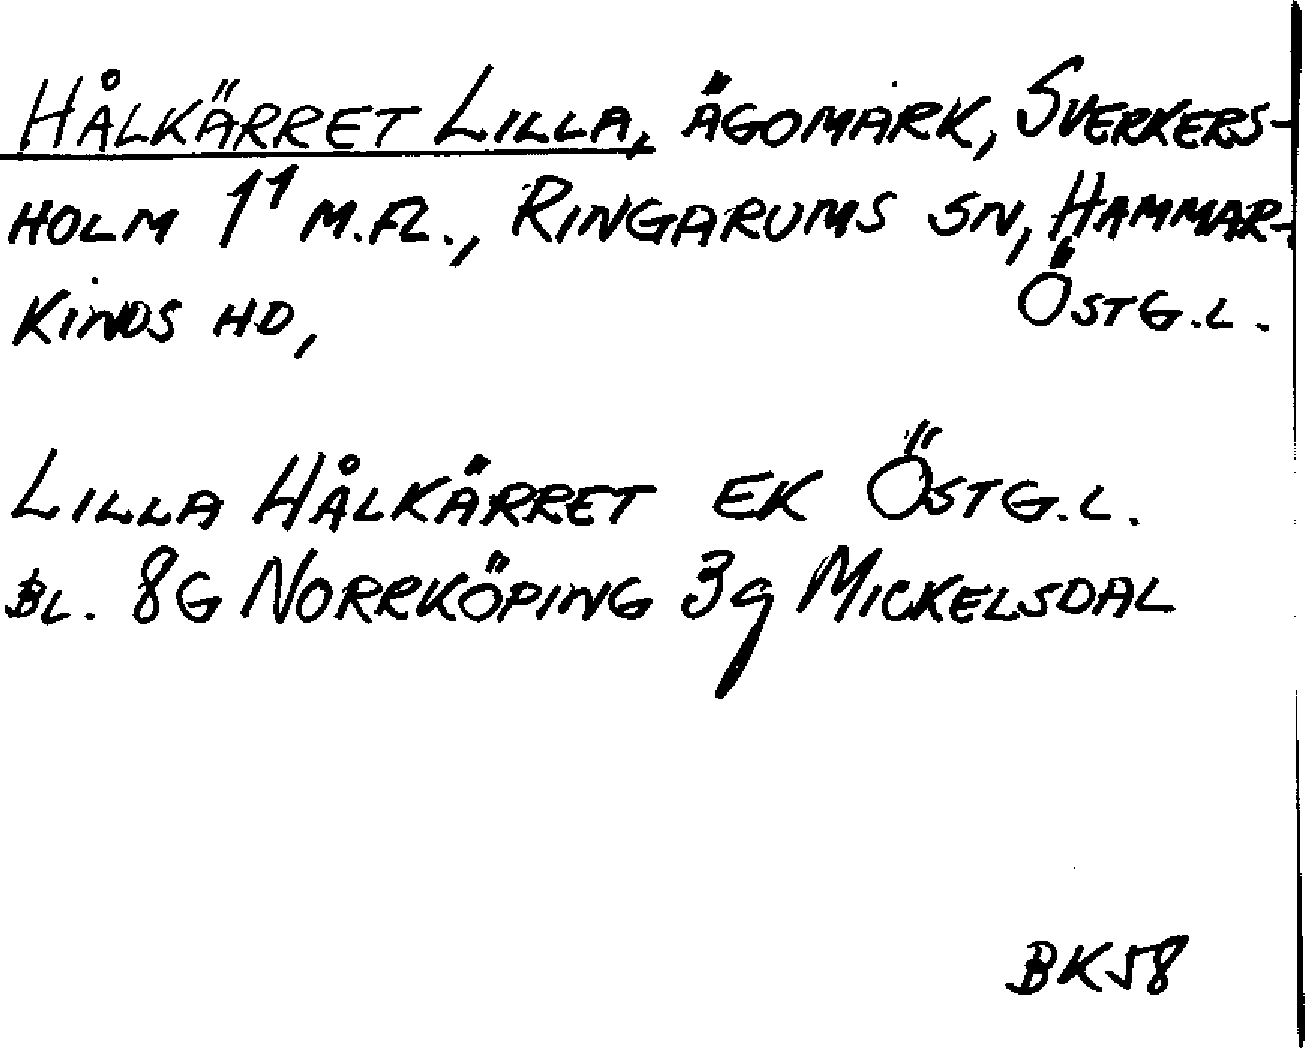 HÅLKÄRRET LILLA, ÄGOMARK, SVERKERS-
HOLM 1¹ M.FL., RINGARUMS SN, HAMMAR-
KINDS HD, ÖSTG.L.
LILLA HÅLKÄRRET EK ÖSTG.L.
BL. 8G NORRKÖPING 3g MICKELSDAL
BK58